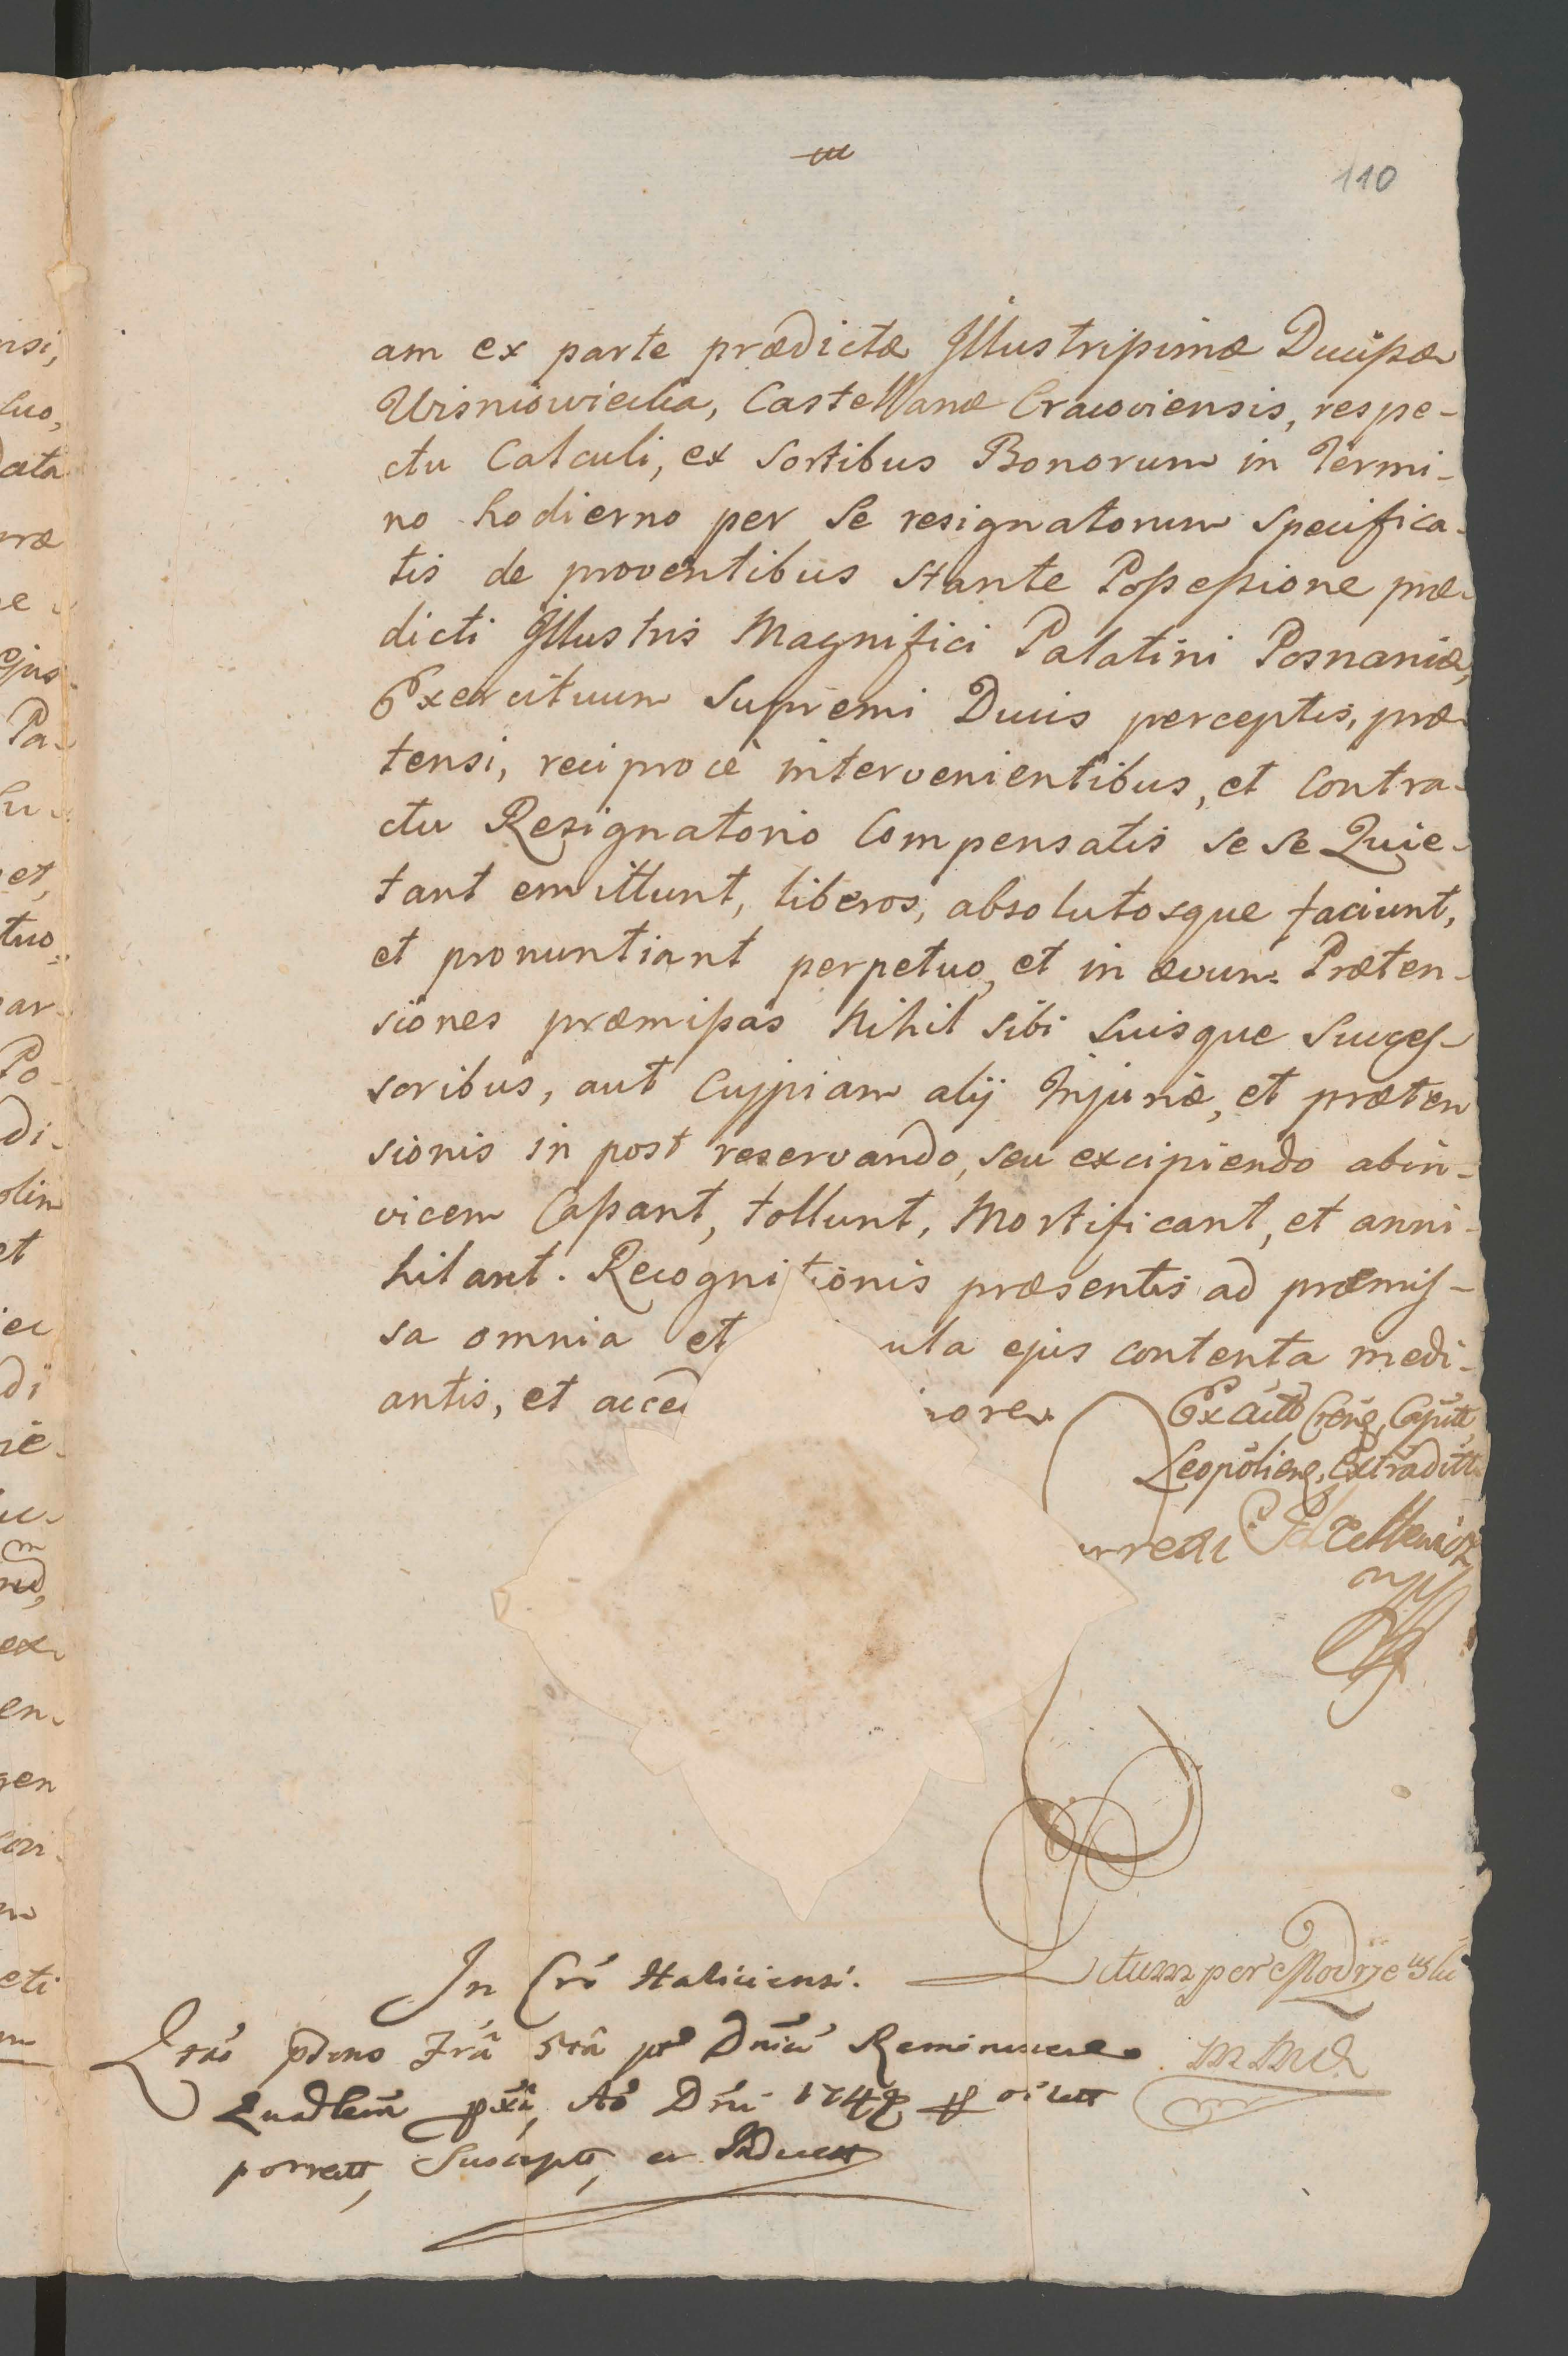 110
am ex parte prædictæ Illustrissimæ Ducissæ
Wisniowiecka, Castellanæ Cracoviensis, respe-
ctu Calculi, ex Sortibus Bonorum in Termi-
no hodierno per Se resignatorum Specifica-
tis de proventibus stante Possessione præ-
dicti Illustris Magnifici Palatini Posnaniæ,
Exercituum Supremi Ducis perceptis, præ-
tensi, reciprocè intervenientibus, et Contra-
ctu Resignatorio Compensatis se se Quie-
tant emittunt, liberos, absolutosque faciunt,
et pronuntiant perpetuo, et in ævum. Præten-
siones præmissas Nihil sibi Suisque Succes-
soribus, aut Cujpiam alij Injuriæ, et præten
sionis in post reservando, seu excipiendo abin-
vicem Cassant, tollunt, Mortificant, et anni-
hilant. Recognitionis præsentis ad præmis-
sa omnia et ula ejus contenta medi-
antis, et acced iore
Ex Actis Capitt
Leopolien, Extraditt
In Haliciensi.
Lectum per Modrzewski
pdno post Reminiscere
Dni
porrectt, Suscept, et